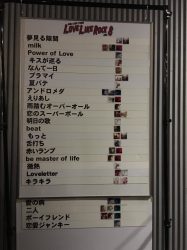 LOVE LIKE ROCK
夢見る隙間
milk
Power of Love
キスが巡る
なんて一日
プラマイ
夏バテ
アンドロメダ
えりあし
雨踏むオーバーオール
恋のスーパーボール
明日の歌
beat
もっと
舌打ち
赤いランプ
be master of life
微熱
Loveletter
キラキラ
愛の病
二人
ボーイフレンド
恋愛ジャンキー